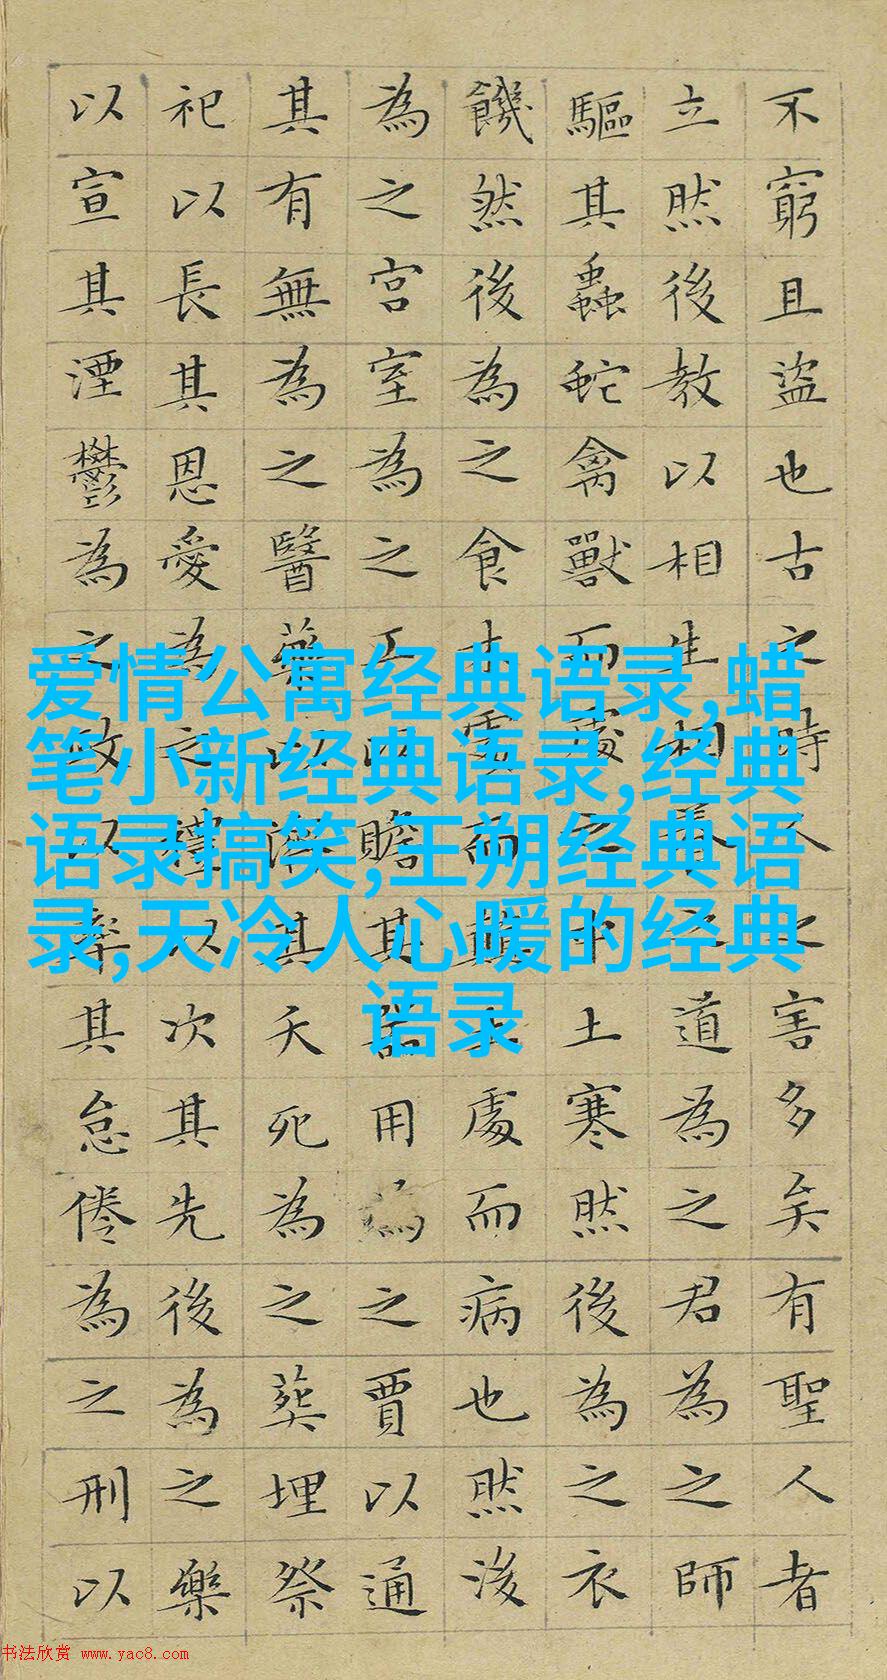 不窮且盜也古之時人之害多矣有聖人者
立然後教以相生相養之道為之君為之師
驅其蟲蛇禽獸而處之中土寒然後為之衣
饑然後為之食木處而顛土處而病也然後
為之宮室為之工以贍其器用為之賈以通
其有無為之醫藥以濟其夭死為之葬埋祭
祀以長其恩愛為之禮以次其先後為之樂
以宣其湮鬱為之政以率其怠倦為之刑以
爱情公寓经典语录,蜡
笔小新经典语录,经典
语录搞笑,王朔经典语
录,天冷人心暖的经典
语录
书法欣赏 www.yac8.com